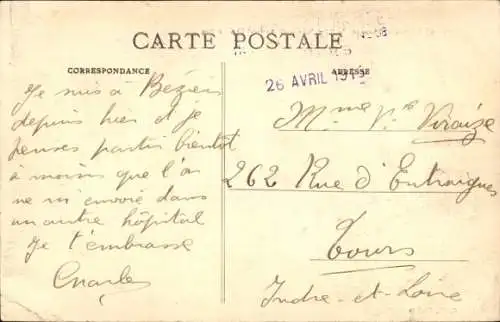 CARTE POSTALE
CORRESPONDANCE
ADRESSE
26 AVRIL 191
Je suis à Béziers
depuis hier et je
penses partir bientôt
a moins que l'on
ne m'envoie dans
un autre hôpital
Je t'embrasse
Charles
Mme Vve
262 Rue d'Entraigues
Tours
Indre-et-Loire